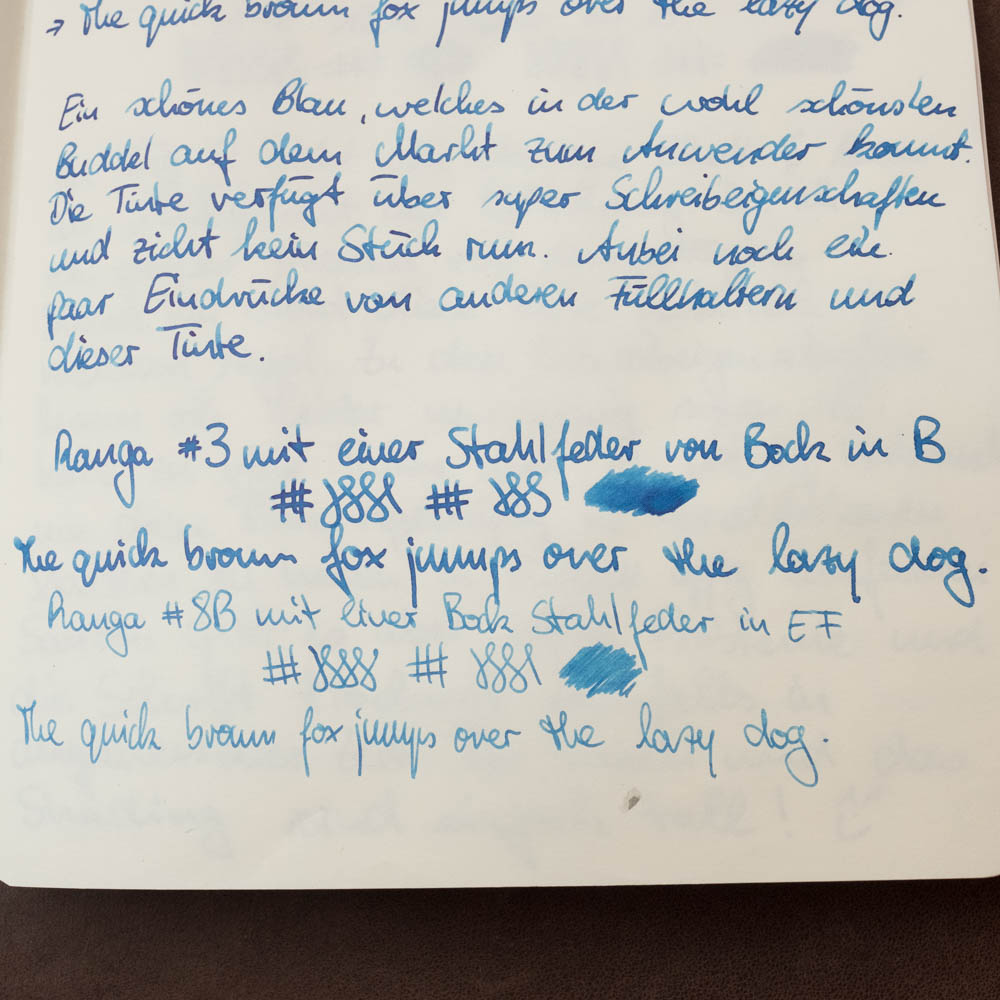 → The quick brown fox jumps over the lazy dog.
Ein schönes Blau, welches in der wohl schönsten
Buddel auf dem Markt zum Anwender kommt.
Die Tinte verfügt über super Schreibeigenschaften
und zickt kein Stück rum. Anbei noch ein
paar Eindrücke von anderen Füllhaltern und
dieser Tinte.
Ranga #3 mit einer Stahlfeder von Bock in B
The quick brown fox jumps over the lazy dog.
Ranga #8B mit einer Bock Stahlfeder in EF
The quick brown fox jumps over the lazy dog.